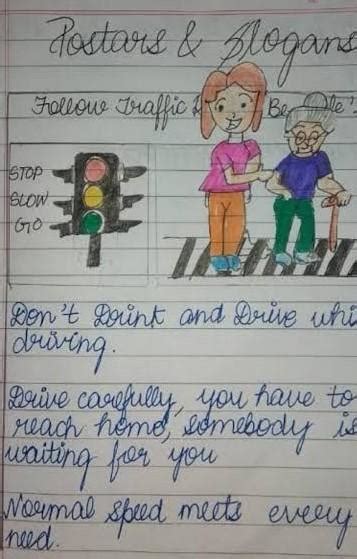 Postars & Slogans
Follow Traffic
STOP
SLOW
GO
Don't Drink and Drive whi
driving.
Drive carefully, you have to
reach home, somebody is
waiting for you
Normal speed meets every
need.